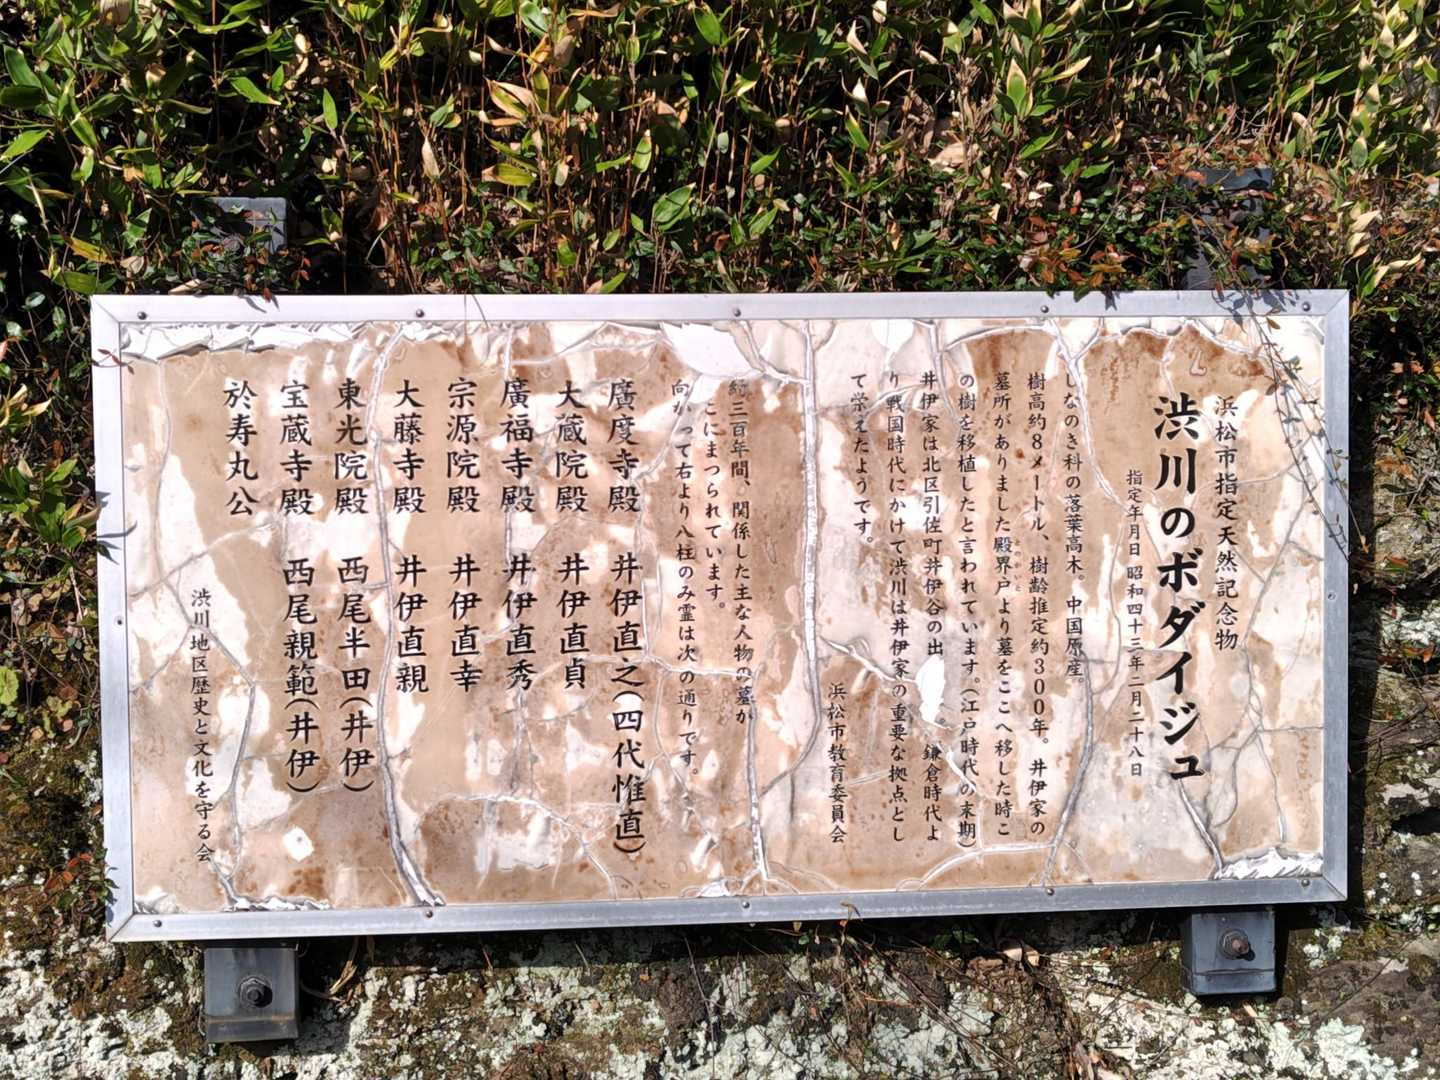 浜松市指定天然記念物
渋川のボダイジュ
指定年月日 昭和四十三年二月二十八日
しなのき科の落葉高木。中国原産。
樹高約8メートル、樹齢推定約300年。井伊家の
墓所がありました殿界戸より墓をここへ移した時こ
とのかいと
の樹を移植したと言われています。(江戸時代の末期)
井伊家は北区引佐町井伊谷の出 鎌倉時代よ
り戦国時代にかけて渋川は井伊家の重要な拠点とし
て栄えたようです。
浜松市教育委員会
約三百年間、関係した主な人物の墓が
ここにまつられています。
向かって右より八柱のみ霊は次の通りです。
廣度寺殿 井伊直之(四代惟直)
大蔵院殿 井伊直貞
廣福寺殿 井伊直秀
宗源院殿 井伊直幸
大藤寺殿 井伊直親
東光院殿 西尾半田(井伊)
宝蔵寺殿 西尾親範(井伊)
於寿丸公
渋川地区歴史と文化を守る会